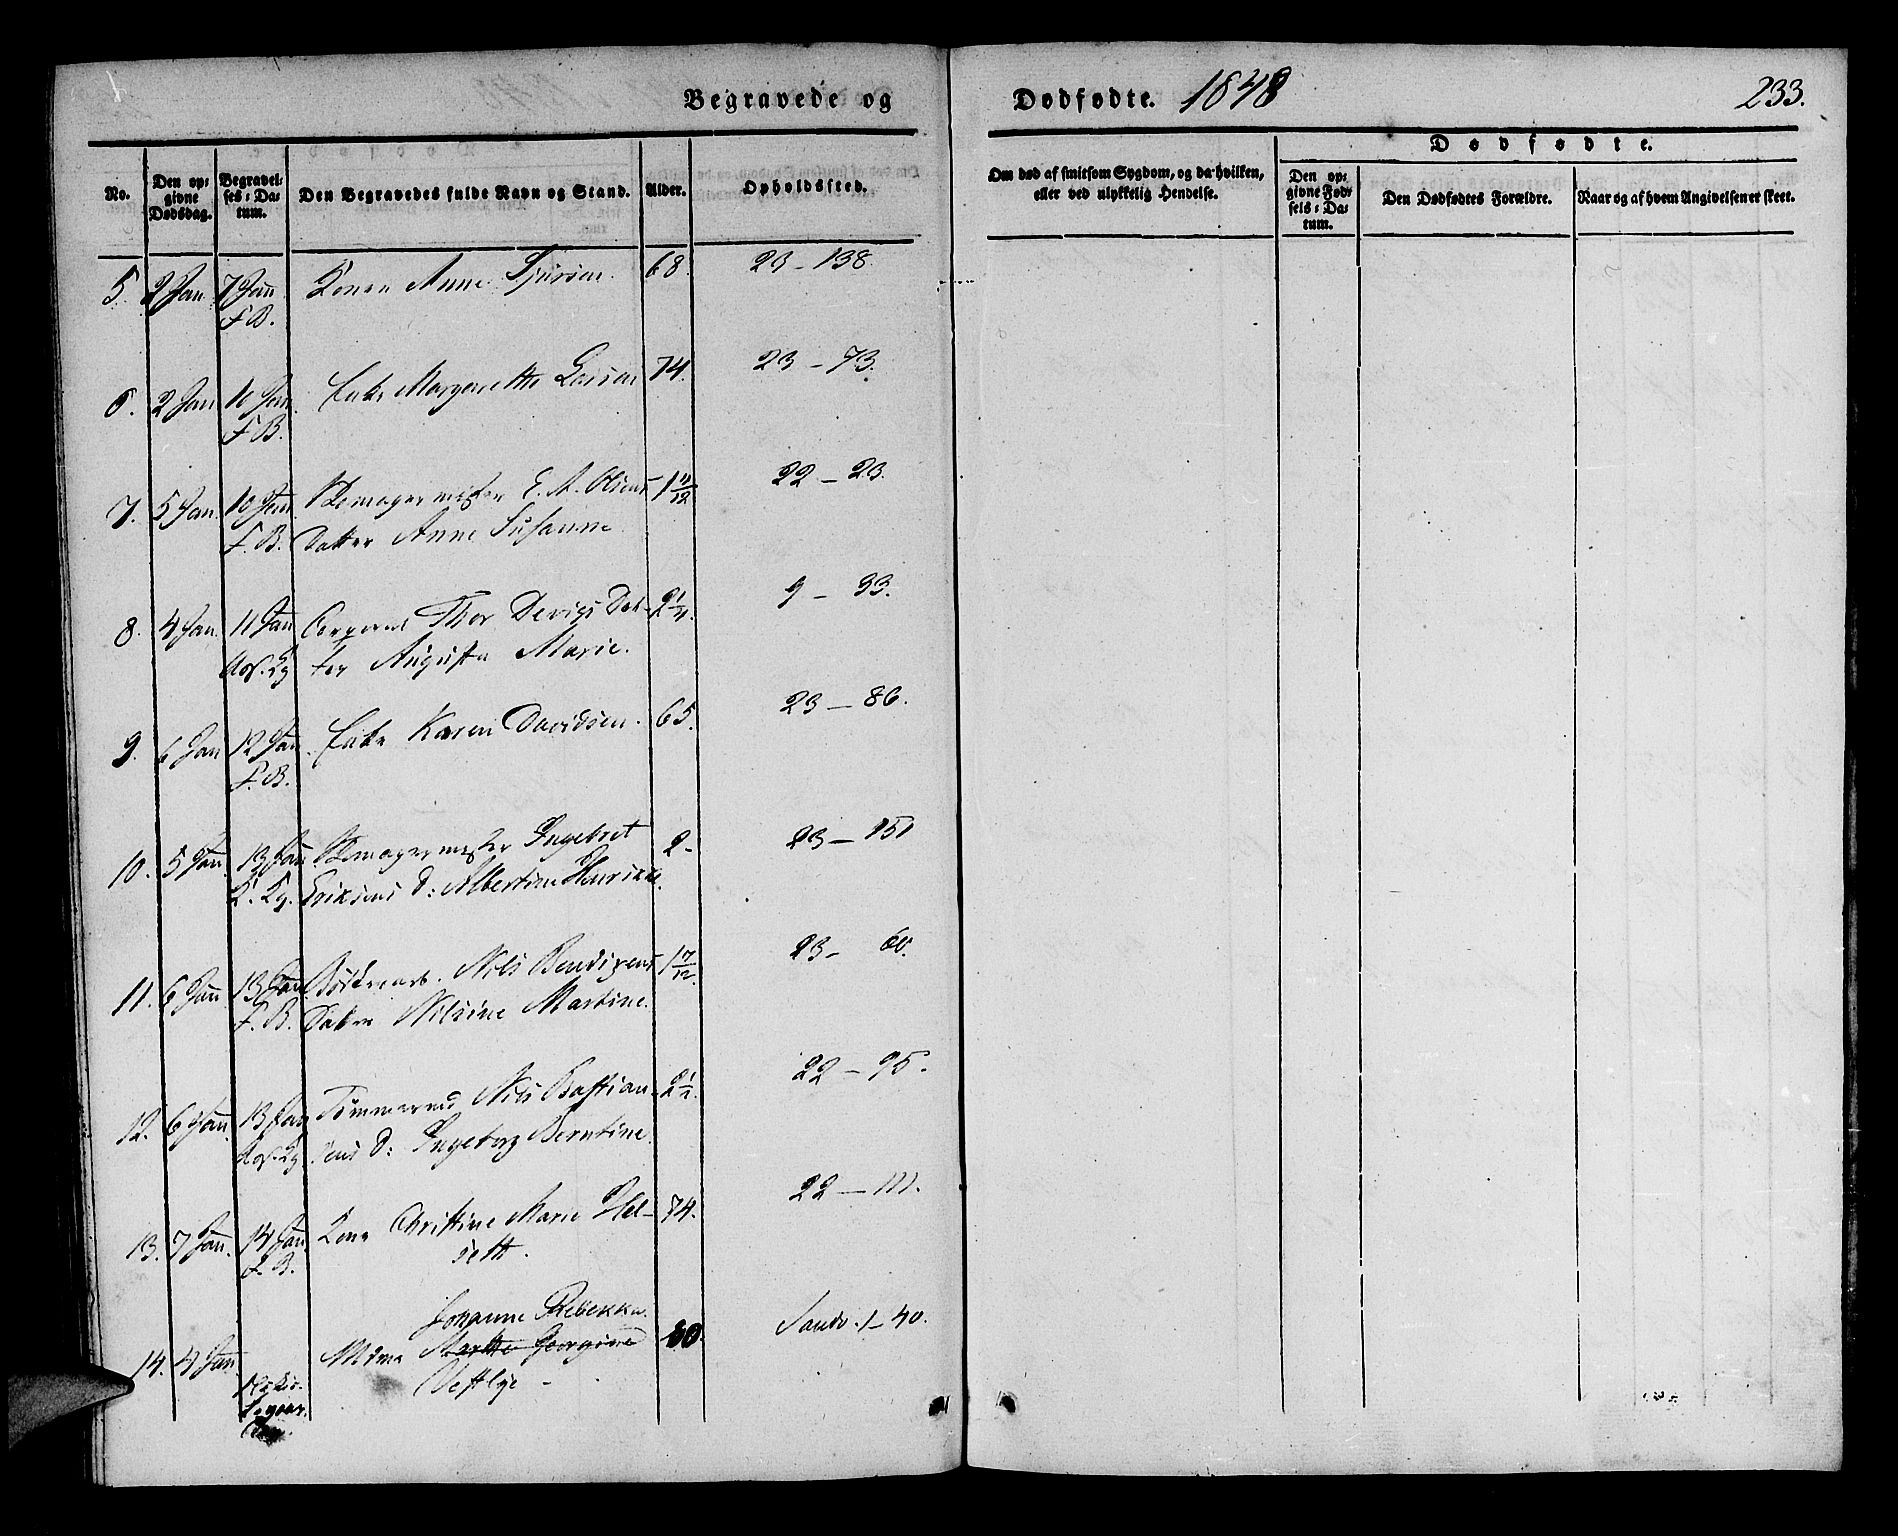 Begravede og
Dødfødte. 1848
233.
No.
Den opgivne Dødsdag.
Begravelses-Datum.
Den Begravedes fulde Navn og Stand.
Alder.
Opholdssted.
Om død af smitsom Sygdom, og da hvilken, eller ved ulykkelig Hendelse.
Dødfødte.
Den opgivne Fødsels-Datum.
Den Dødfødtes Forældre.
Naar og af hvem Angivelsen er skeet.
5. 2 Jan 7 Jan Konen Anne Sjursen 68. 23 – 138.
F B.
6. 2 Jan 10 Jan Enke Margarethe 74. 23 – 73.
F B.
7. 5 Jan. 10 Jan Skomagermester E. A. Olsens 1 11/12 22 – 23.
F. B. Datter Anne Susanne
8. 4 Jan. 11 Jan Thor Dat- 2 1/4. 9 – 33.
ter Augusta Marie.
9. 6 Jan 12 Jan. Enke Karen Davidsen. 65. 23 – 86.
F. B.
10. 5 Jan. 13 Jan Skomagermester Ingebret 2- 23 – 151
K. Kg. Eriksens D: Albertine Henrikke.
11. 6 Jan 13 Jan. Nils Bendixens 1 7/12. 23 – 60.
F. B. Datter Nilsine Martine.
12. 6 Jan. 13 Jan Tømmermd Nils Bastian- 2 1/2. 22 – 95.
sens D: Ingeborg Berntine.
13. 7 Jan. 14 Jan. Kone Christine Marie Hel- 74. 22 – 111.
F. B. seth.
Johanne Rebekka
14. 4 Jan. Mdme Georgine 60. Sandv. 1 – 40.
Vestlye –